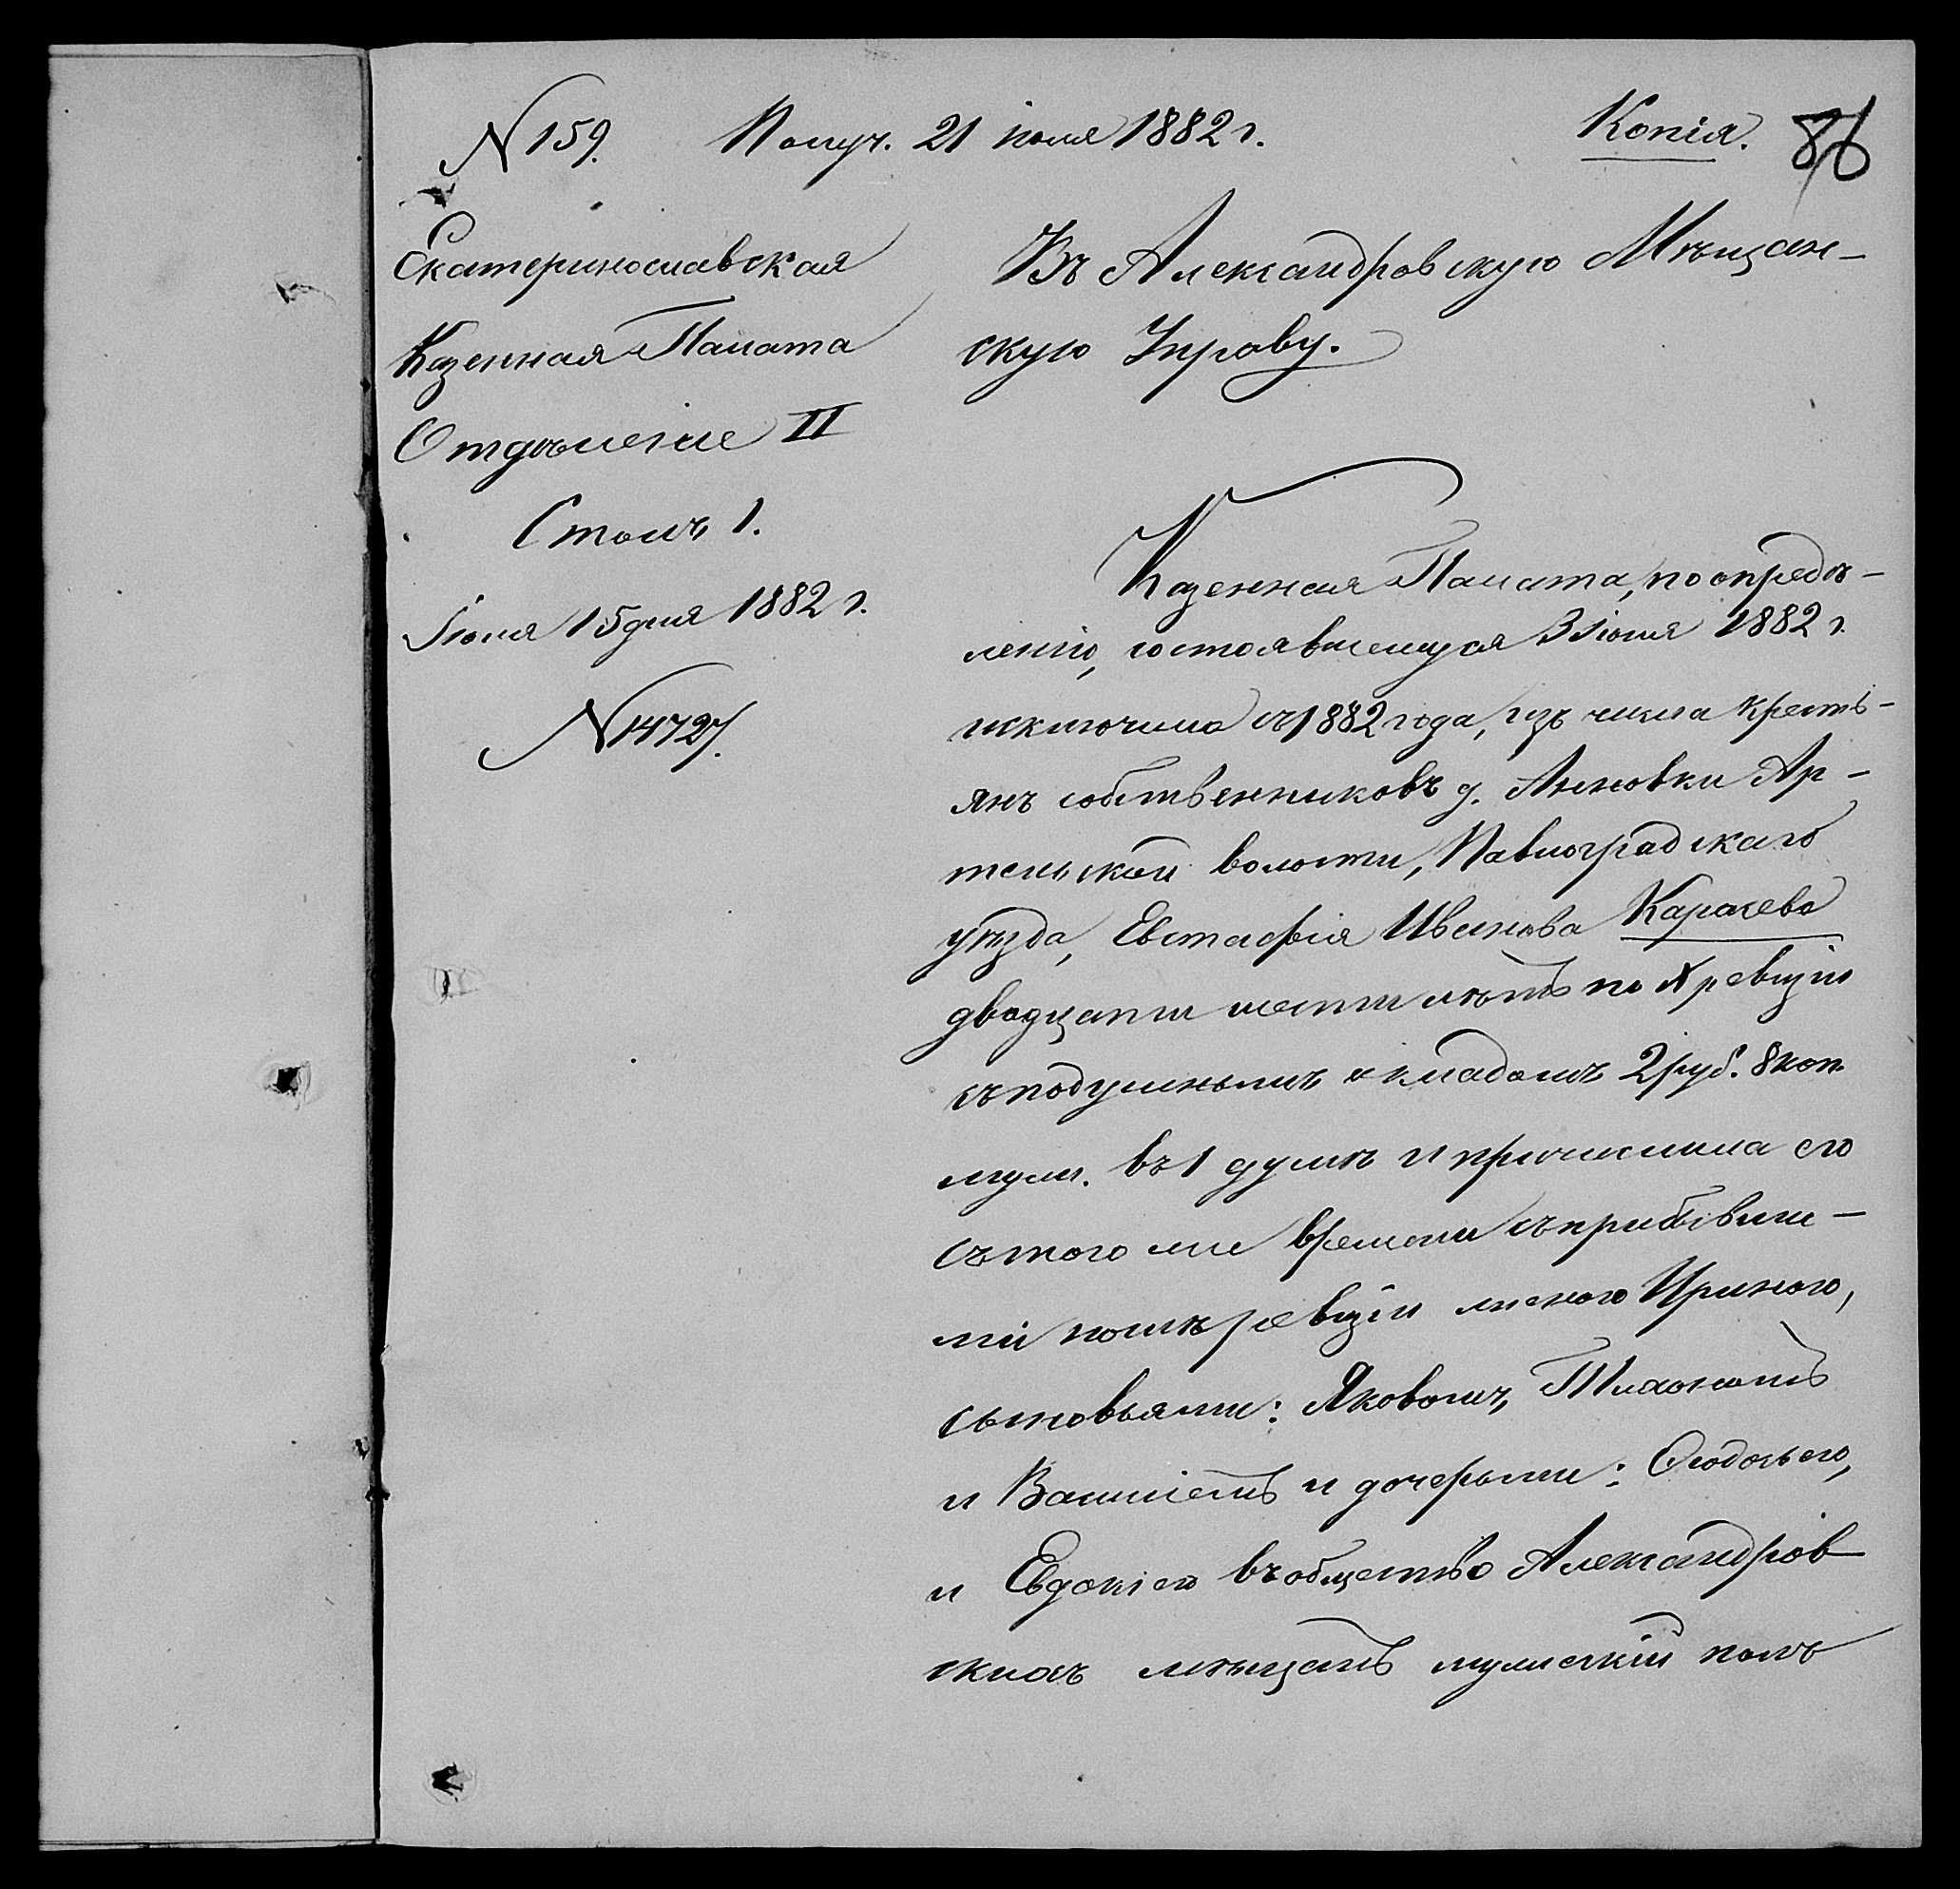 N 159. Получ. 21 іюля 1882 г. Копія. 86
Екатеринославская
Казенная Палата
Отдѣленіе II
Столъ 1.
Іюля 15 дня 1882 г.
N 14727.
Въ Александровскую Мѣщан-
скую Управу.
Казенная Палата, по опредѣ-
ленію, состоявшемуся 3 Іюня 1882 г.
исключила съ 1882 года, изъ числа кресть-
янъ собственниковъ д. Анновки Ар-
тельской волости, Павлоградскаго
уѣзда, Евстафія Иванова Карачева
двадцати шести лѣтъ по X ревизіи
съ подушнымъ окладомъ 2 руб. 8 коп.
муж. въ 1 душѣ и причислила его
съ того же времени съ прибывши-
ми послѣ ревизіи женою Ириною,
сыновьями: Яковомъ, Платономъ
и Василіемъ и дочерьми: Ѳеодосьею,
и Евдокіею въ общество Александров
скихъ мѣщанъ мужескій полъ